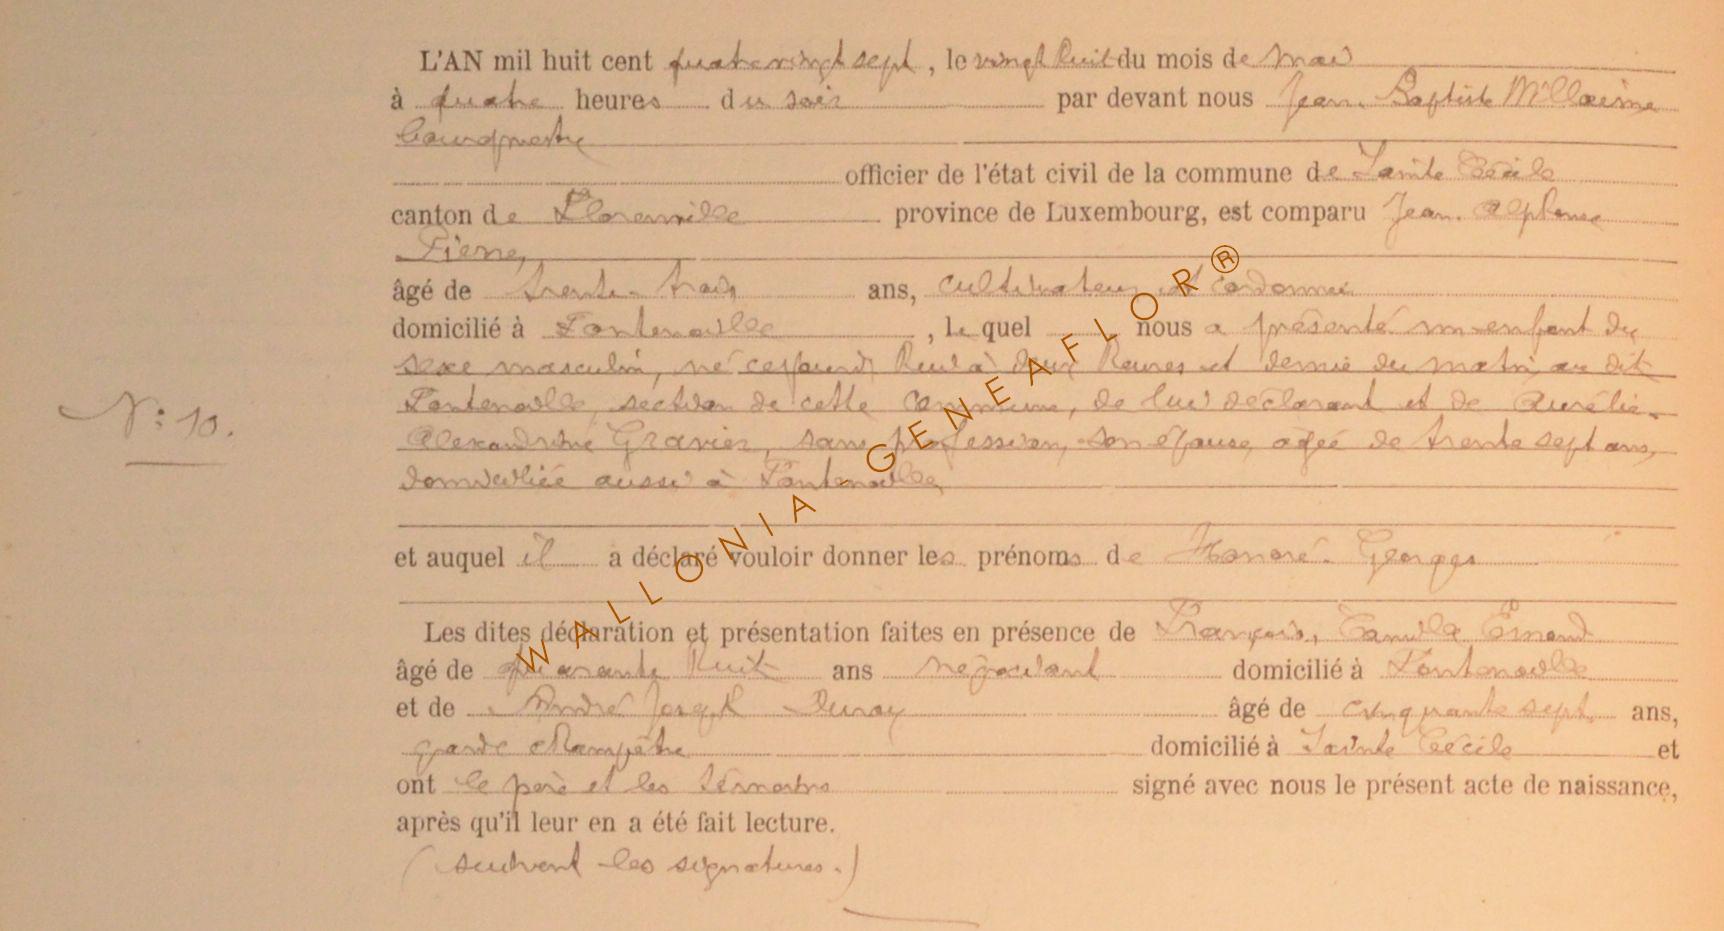 L'AN mil huit cent quatrevingt sept, le vingt huit du mois de mai
à quatre heures du soir par devant nous Jean-Baptiste
Bourgmestre
officier de l'état civil de la commune de Sainte Cécile
canton de Florenville province de Luxembourg, est comparu Jean-Alphonse
Pierre,
âgé de trente-trois ans, cultivateur et cordonnier
domicilié à Fontenoille, le quel nous a présenté un enfant du
sexe masculin, né cejourd'hui à deux heures et demie du matin, au dit
Fontenoille, section de cette commune, de lui déclarant et de Aurélie-
Alexandrine Gravier, sans profession, son épouse, agée de trente sept ans,
domiciliée aussi à Fontenoille,
N: 10.
et auquel il a déclaré vouloir donner les prénoms de Honoré-Georges
Les dites déclaration et présentation faites en présence de François, Camille Emond
âgé de quarante huit ans négociant domicilié à Fontenoille
et de André Joseph Duroy âgé de cinquante sept ans,
garde champêtre domicilié à Sainte Cécile et
ont le père et les témoins signé avec nous le présent acte de naissance,
après qu'il leur en a été fait lecture.
(suivent les signatures.)
WALLONIA - GENEAFLOR ®